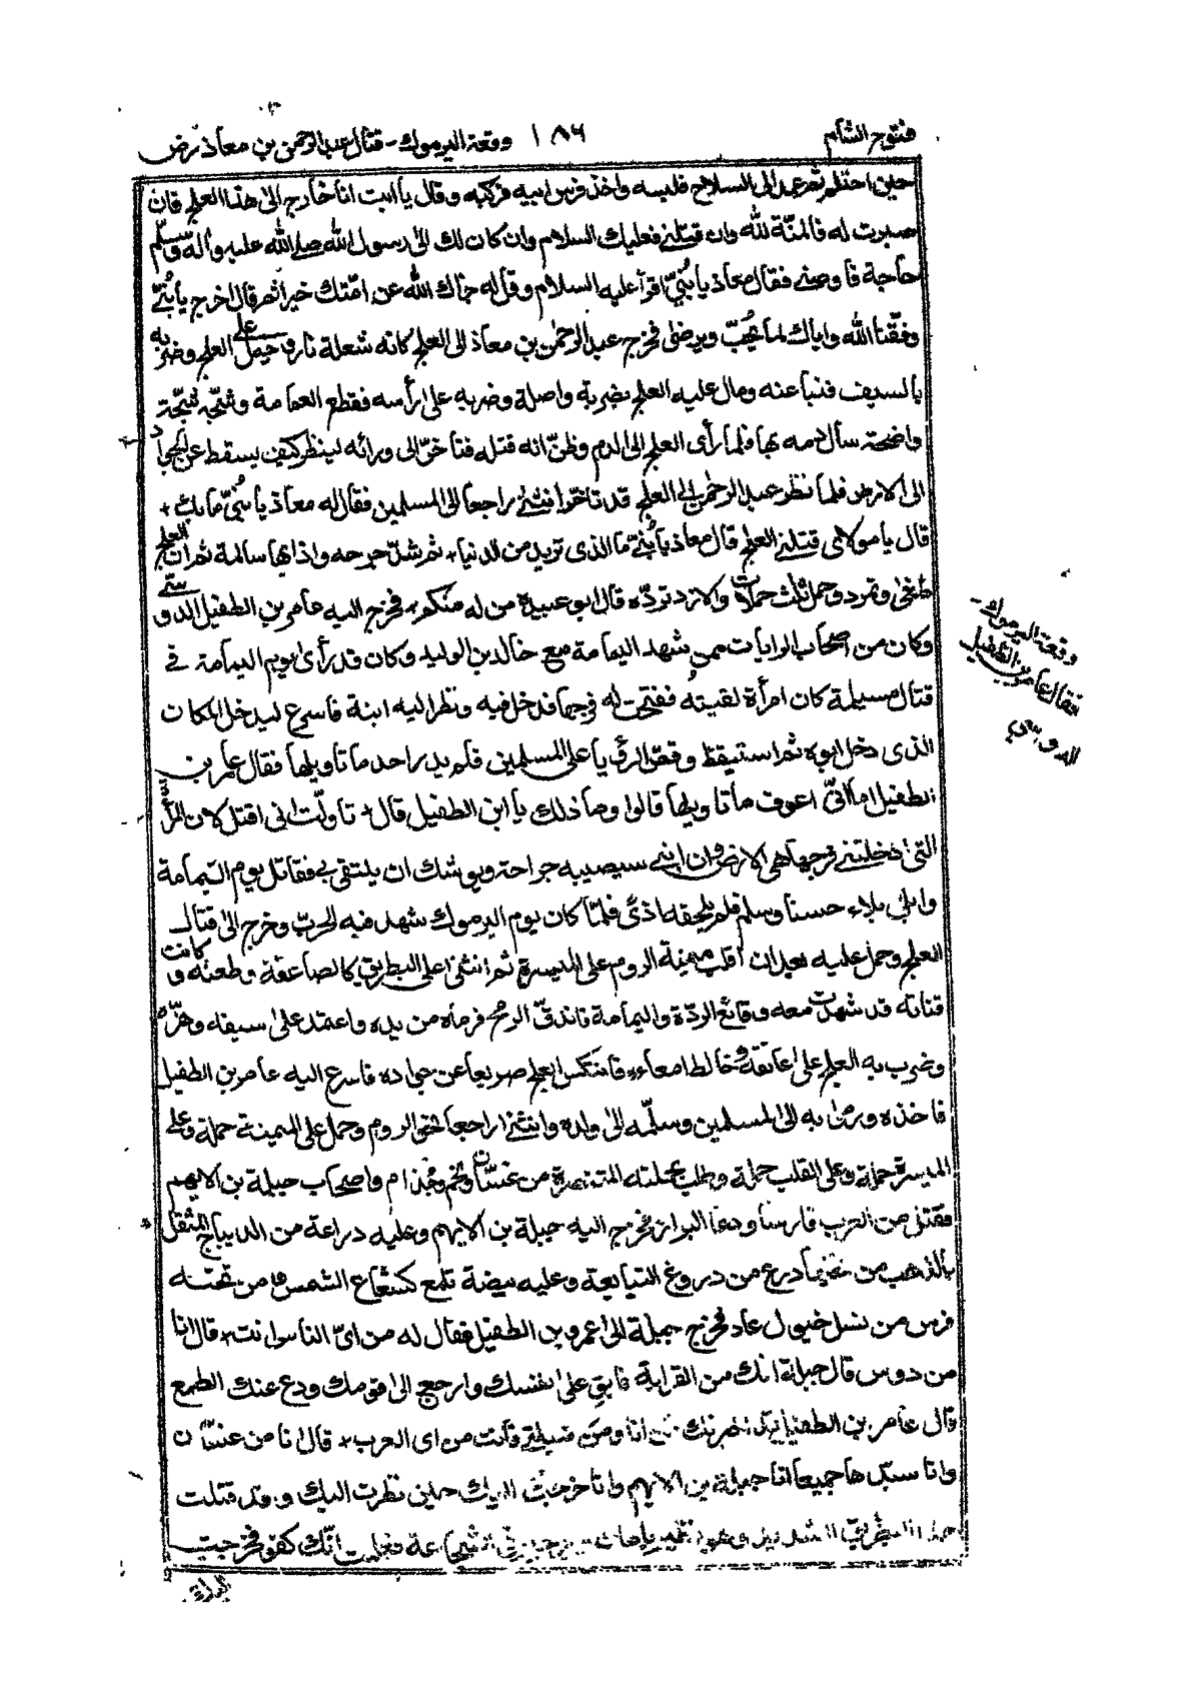 فتوح الشام ١٨٦ وقعة اليرموك - قتال عبد الرحمن بن معاذ رض
حين احتلم ثم عمد الى السلاح فلبسه واخذ فرس ابيه فركبه وقال يا ابت انا خارج الى هذا العلج فان
صبرت له فالمنّة لله وان قتلني فعليك السلام وان كان لك الى رسول الله صلے الله عليه واٰله وسلّم
حاجة فاوصني فقال معاذ يا بُنيّ اقرأ عليه السلام وقل له جزاك الله عن امّتك خيرا ثم قال اخرج يا بُنيّ
وفّقنا الله واياك لما يُحبّ ويرضى فخرج عبد الرحمٰن بن معاذ الى العلج كانه شعلة نار وحمل على العلج وضربه
بالسيف فنبا عنه ومال عليه العلج بضربة واصلة وضربه على رأسه فقطع العمامة وشجّه شجّة
واضحة سال دمه بها فلما رأى العلج الى الدم وظنّ انه قتله فتاخّر الى ورائه لينظر كيف يسقط عن الجواد
الى الارض فلما نظر عبد الرحمٰن الى العلج قد تاخّر انثنى راجعا الى المسلمين فقال له معاذ يا بُنيّ ما بك +
قال يا مولاي قتلني العلج قال معاذ يا بُنيّ ما الذى تريد من الدنيا + ثم شدّ جرحه واذا بها سالمة ثم ان العلج
طغى وتمرد وحمل ثلث حملات والازد تردّه قال ابو عبيدة من له منكم + فخرج اليه عامر بن الطفيل الدوسي
وكان من اصحاب الرايات ممن شهد اليمامة مع خالد بن الوليد وكان قد رأى يوم اليمامة في
قتال مسيلمة كان امرأة لقيتْهُ ففتحت له فرجها فدخل فيه ونظر اليه ابنة فاسرع ليدخل المكان
الذى دخل ابوه ثم استيقظ وقصّ الرؤيا على المسلمين فلم يدر احد ما تاويلها فقال عامر بن
الطفيل اما انّي اعرف ما تاويلها قالوا وما ذلك يا ابن الطفيل قال + تاولّت انى اقتل لان المرأة
التى ادخلتنى فرجها هى الارض وان ابني سيصيبه جراحة ويوشك ان يلتقى بى فقاتل يوم اليمامة
وابلى بلاء حسنا وسلم فلم يلحقه اذى فلمّا كان يوم اليرموك شهد فيه الحرب وخرج الى قتال
العلج وحمل عليه بعد ان اقلب ميمنة الروم على الميسرة ثم انثنى على البطريق كالصاعقة وطعنه وكانت
قناته قد شهدت معه وقائع الردّة واليمامة فاندقّ الرمح فرماه من يده واعتمد على سيفه وهزّه
وضرب به العلج على عاتقه وخالط امعاءه فانتكس العلج صريعا عن جواده فاسرع اليه عامر بن الطفيل
فاخذه ورمى به الى المسلمين وسلّمه الى ولده وانثنى راجعا نحو الروم وحمل على الميمنة حملة وعلى
الميسرة حملة وعلى القلب حملة وطلب بحملته المتنصرة من غسّان ولخم وجُذام واصحاب جبلة بن الايهم
فقتل من العرب فارسا ودعا البراز فخرج اليه جبلة بن الايهم وعليه دراعة من الديباج المثقل
بالذهب من تحتها درع من دروع التبابعة وعليه بيضة تلمع كشعاع الشمس ومن تحته
فرس من نسل خيول عاد فخرج جبلة الى عمرو بن الطفيل فقال له من اىّ الناس انت + قال انا
من دوس قال جبلة انك من القرابة فابق على نفسك وارجع الى قومك ودع عنك الطمع
قال عامر بن الطفيل قد اخبرتك من انا ومن قبيلتي وانت من اى العرب + قال انا من غسّان
وانا سيّدها جميعا انا جبلة بن الايهم وانا خرجت اليك حين نظرت اليك وقد قتلت
هذا البطريق الشديد وهو نظير باهان جرجير فى الشجاعة فعلمت انّك كفو فخرجت
اليك
وقعة اليرموك -
فقال عامر بن الطفيل
الدوسي